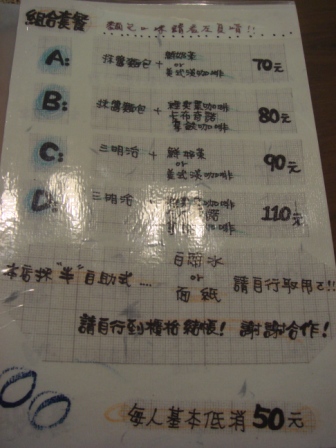 組合套餐
A: 抹醬麵包 + 鮮奶茶 or 美式漢咖啡 70元
B: 抹醬麵包 + 咖啡 卡布奇諾 咖啡 80元
C: 三明治 + 鮮奶茶 or 美式漢咖啡 90元
D: 三明治 + 110元
本店採"半"自助式 ....
白開水
or
面紙
請自行取用ㄛ!!
請自行到櫃檯結帳! 謝謝合作!
每人基本低消50元